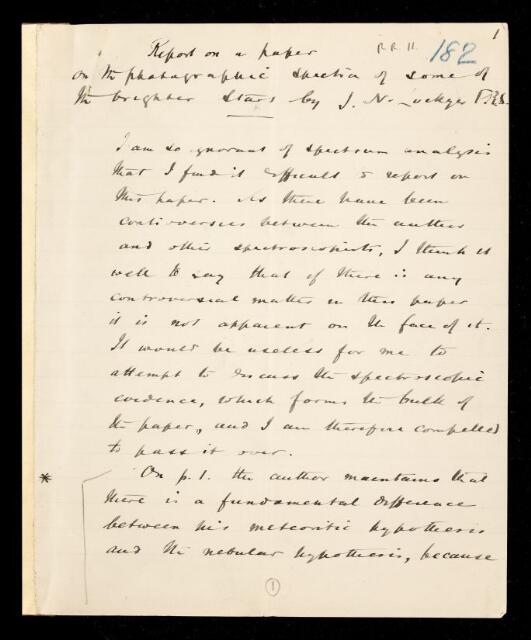 1
Report on a paper
RR 11 182
on the photographic spectra of some of
the brighter Stars by J. N. Lockyer FRS.
I am so ignorant of spectrum analysis
that I find it difficult to report on
this paper. As there have been
controversies between the author
and other spectroscopists, I think it
well to say that if there is any
controversial matter in this paper
it is not apparent on the face of it.
It would be useless for me to
attempt to discuss the spectroscopic
evidence, which forms the bulk of
the paper, and I am therefore compelled
to pass it over.
* On p. 1. the author maintains that
there is a fundamental difference
between his meteoritic hypothesis
and the nebular hypothesis, because
1